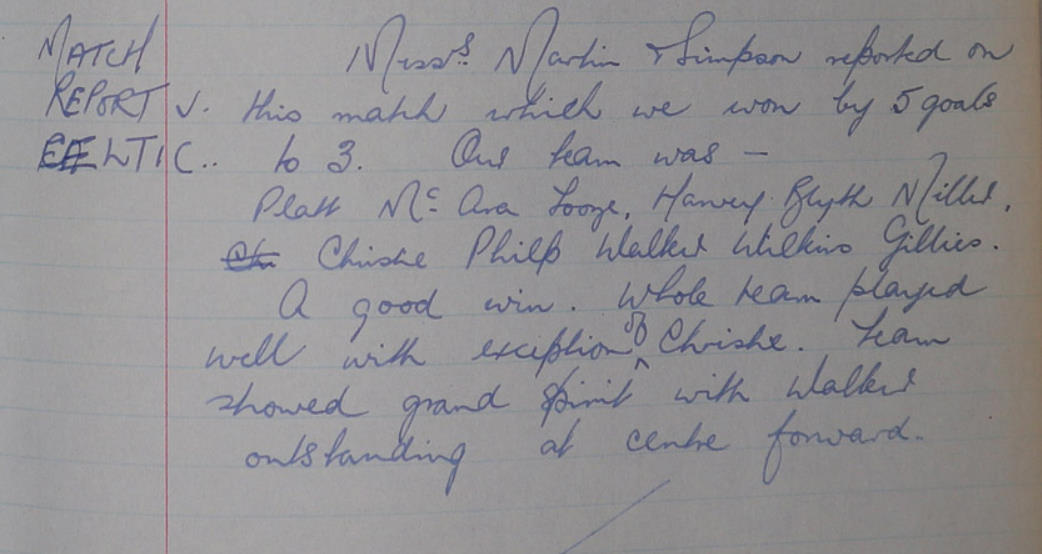 MATCH Messrs Martin & Simpson reported on
REPORT v. this match which we won by 5 goals
CELTIC.. to 3. Our team was —
Platt McAra Looge, Harvey Blyth Miller,
Christie Philp Walker Wilkins Gillies.
A good win. Whole team played
well with exception of Christie. Team
showed grand spirit with Walker
outstanding at centre forward.